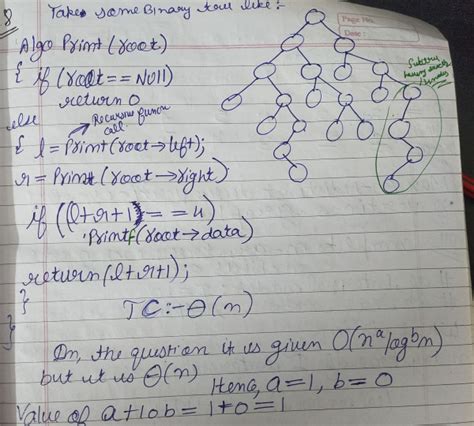 8 Take some Binary tree like :-
Page No.
Date :
Algo Print (root)
{ if (root == Null)
return 0
Recursive function call
else
{ l = Print(root → left);
r = Print (root → right)
if ((l+r+1) == 4)
Printf(root → data)
return (l+r+1);
}
TC :- θ(n)
}
Subtree
having exactly
4 nodes
In, the question it is given O(nᵃ logᵇ n)
but it is θ(n)
Henc, a = 1, b = 0
Value of a + 10 b = 1 + 0 = 1